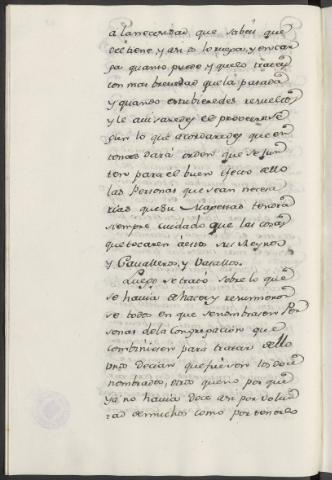 a la necesidad que sabeis que
se tiene, y asi os lo ruega, y encar
ga quanto puede, y que lo traceis
con mas brevedad que la pasada
y quando estubieredes resueltos
y le avisaredes el procurarse
gun lo que acordaredes que en
tonces dará orden que se jun
ten para el buen efecto de ello
las Personas que sean necesa
rias que su Magestad tendrá
siempre cuidado que las cosas
que tocaren a estos sus Reynos
y Cavalleros, y Vasallos.
Luego se trató sobre lo que
se havia de hacer, y resumieron
se todos en que se nombrasen Per
sonas de la Congregacion que
combiniesen para tratar de ello
unos decian que fuesen los doce
nombrados, otros que no por que
ya no havia doce asi por volun
tad de muchos como por tenerlo